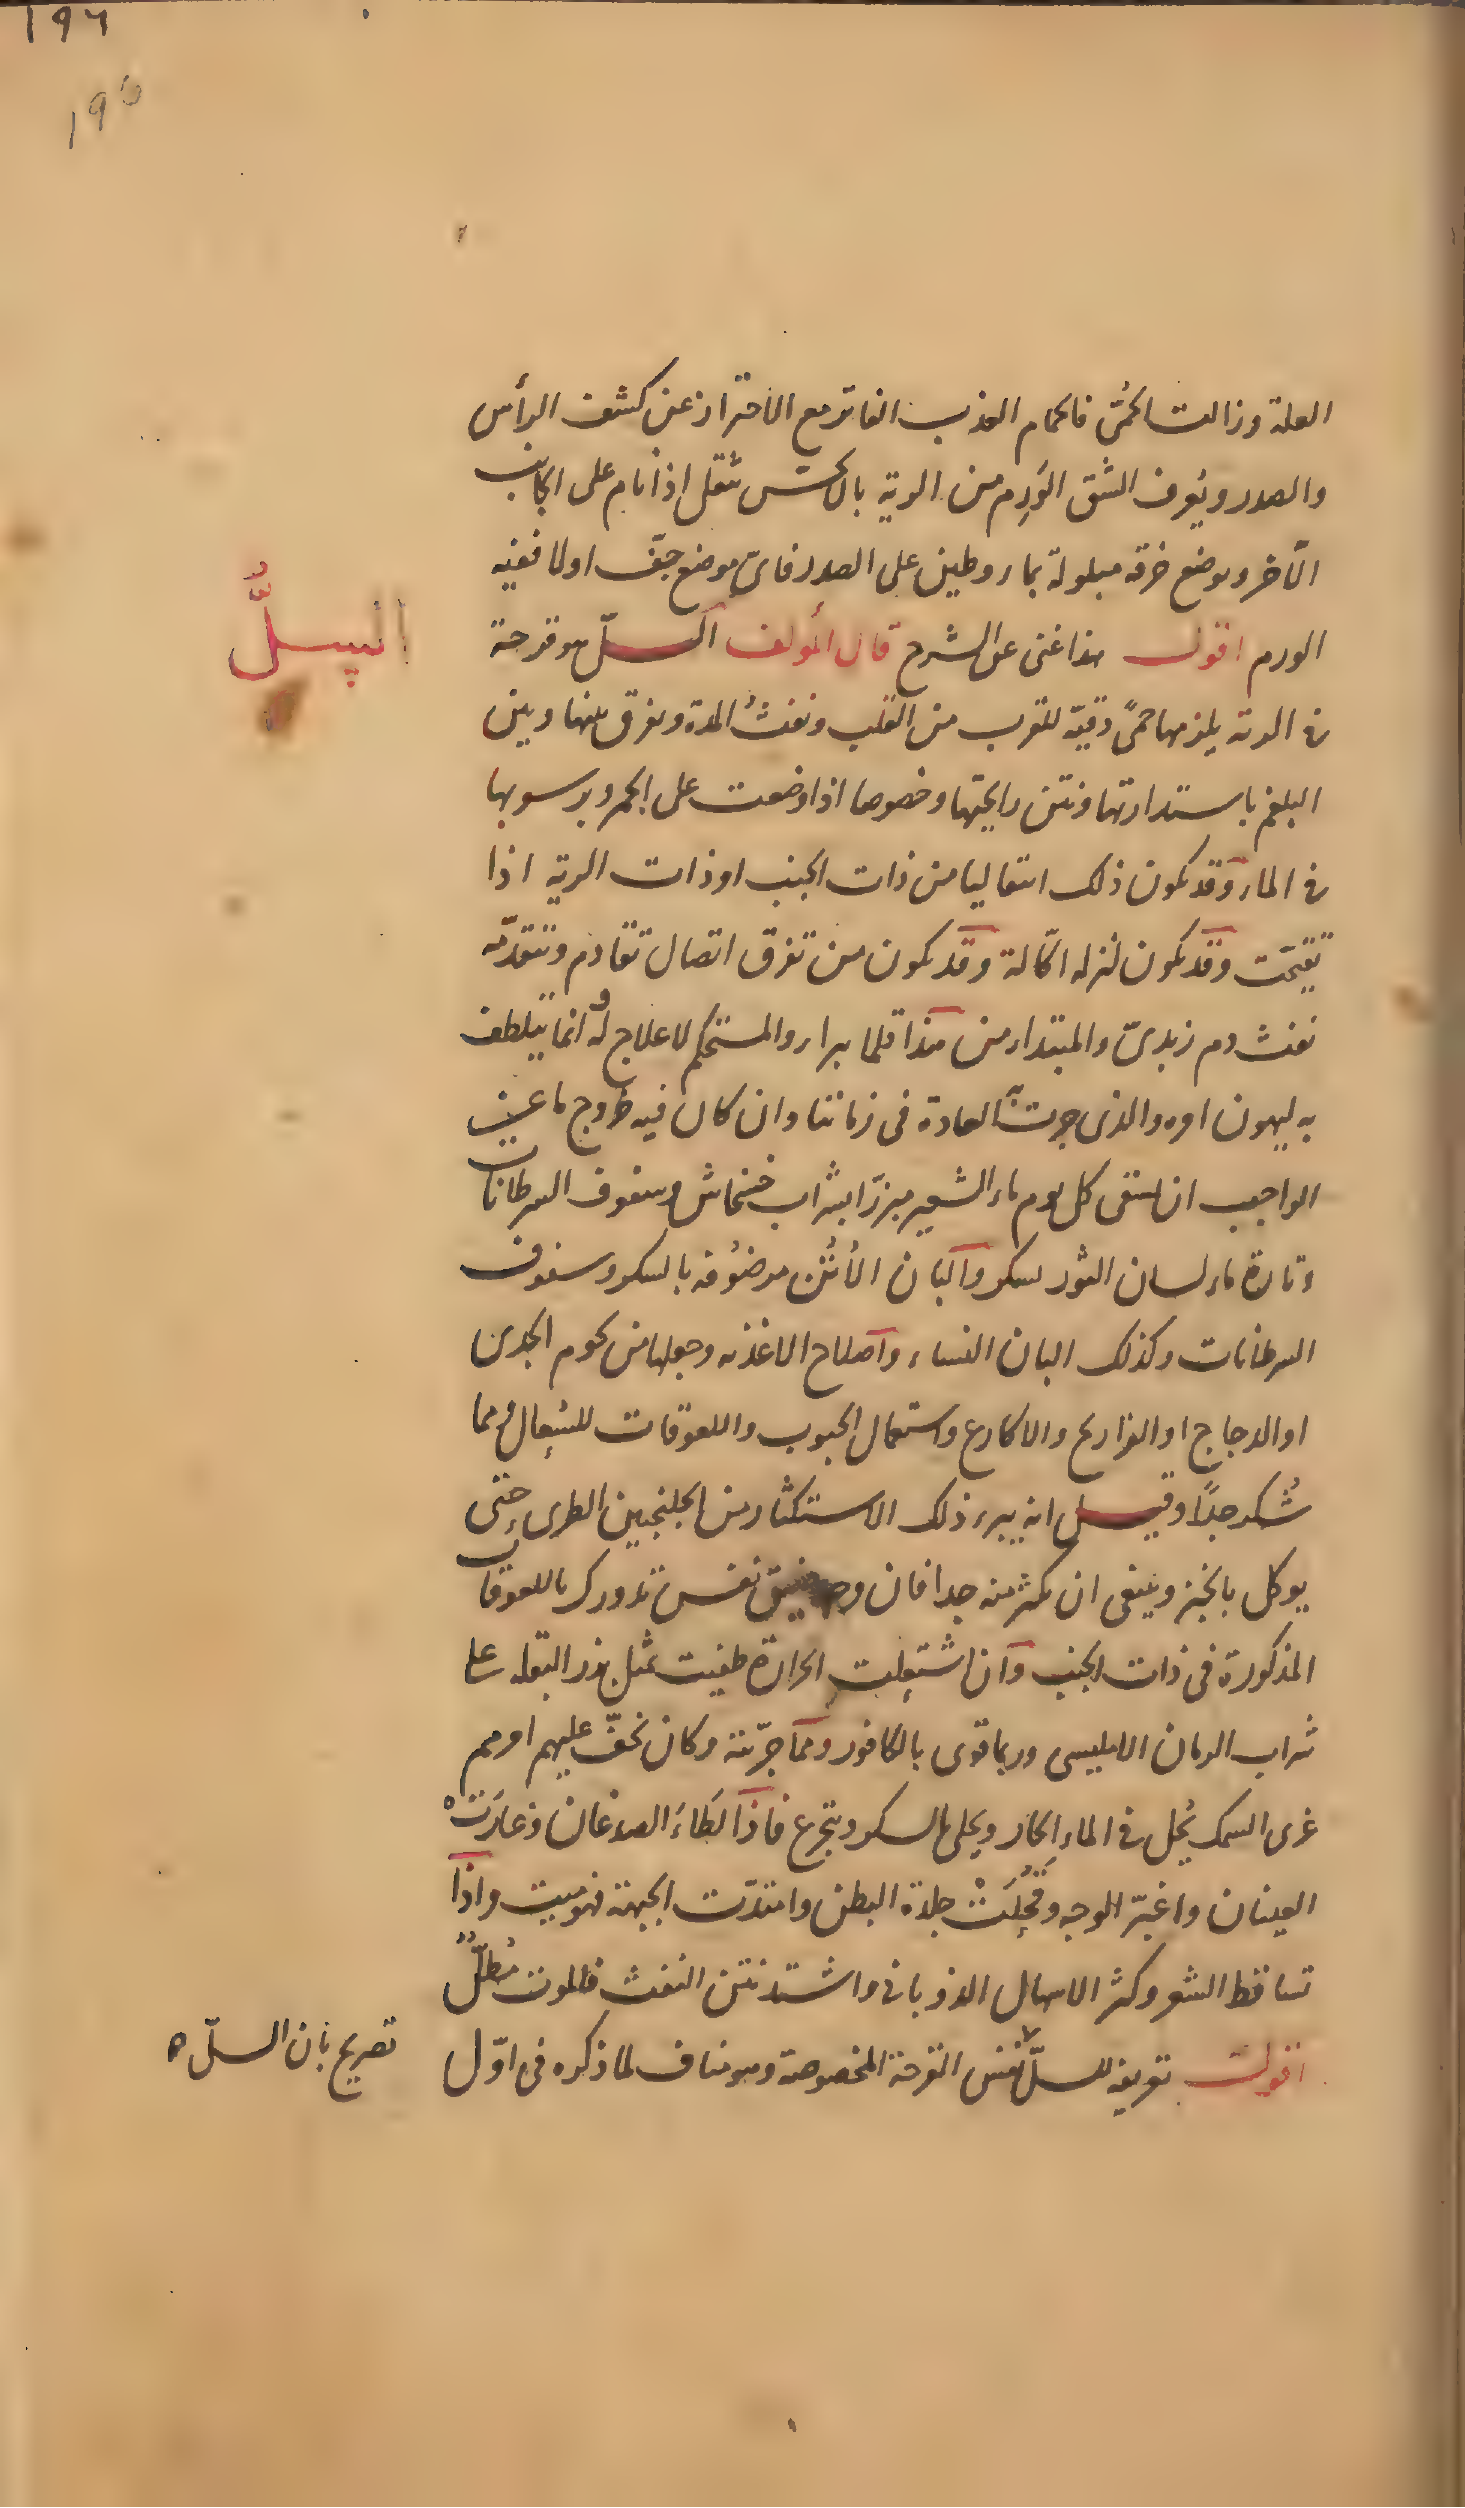 ١٩٦
١٩٥
العلة وزالت الحمّى فالحمام العذب الفاتر مع الاحتراز عن كشف الرأس
والصدر ويُعرف الشق الوَرِم من الرية بالاحسّس ثقل اذا نام على الجانب
الآخر وبوضع خرقة مبلولة بماء وطين على الصدر فاىّ موضع جفّ اولا ففيه
الورم اقول هذا غنى عن الشرح قال المؤلف السلّ هو قرحة
السِلُّ
فى الرية يلزمها حمىً دقيّة للقرب من القلب ونفثُ المدة ويفرق بينها وبين
البلغم باستدارتها ونتن رايحتها وخصوصا اذا وضعت على الجمر وبرسوبها
فى الماء وقد يكون ذلك انتقاليا من ذات الجنب او ذات الرية اذا
تقيّحت وقد يكون لنزلة اكّالة وقد يكون من تفرق اتصال تقادم وتتقدّمه
نفث دم زبدىّ والمبتداء من هذا قلما يبراء والمستحكم لا علاج له وانما يتلطف
به ليهون امره والذى جرت به العادة فى زماننا وان كان فيه خروج ما عن
الواجب ان يسقى كل يوم ماء الشعير مبزرّا بشراب خشخاش وسفوف السرطانات
وتارة ماء لسان الثور بسكر والبان الاُتُن مرضُوفة بالسكر وسفوف
السرطانات وكذلك البان النساء واصلاح الاغذية وجعلها من لحوم الجدى
او الدجاج او الفراريج والاكارع واستعمال الحبوب واللعوقات للسُعال ومما
شُكر جدًا وقيل انه يبرء ذلك الاستكثار من الجلنجبين الطرى حتى
يوكل بالخبز وينبغى ان يكثر منه جدا فان وجد ضيق نفس تدورك باللعوقات
المذكورة فى ذات الجنب وان اشتعلت الحرارة طفيت بمثل بزر البقلة على
شراب الرمان الامليسى وربما قوى بالكافور ومما جرّبته وكان يخفّ عليهم امرهم
غرى السمك يُحل فى الماء الحار ويحلى بالسكر ويتجرع فاذا لَطاءَ الصدغان وغارَتْ
العينان واغبرّ الوجه وقَحُلَتْ جلدة البطن وامتدّت الجبهة فهو ميت واذا
تساقط الشعر وكثر الاسهال الذوبانى واشتد نتن النفث فالموت مُطلٌّ
اقول تعريفه للسلّ بنفس القرحة المخصوصة وهو مناف لما ذكره فى اوّل
تصريح بان السلّ ٥